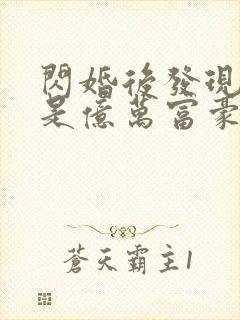 閃婚後發現
是億萬富豪
蒼天霸主1